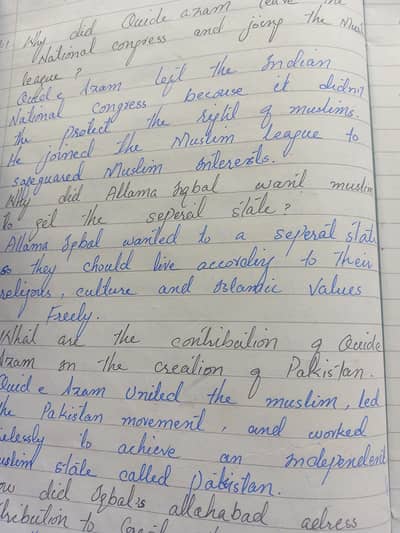 Why did Quide azam leave the
National congress and joing the Mus
league?
Quid e Azam left the Indian
National Congress becouse it didn't
the protect the right of muslims.
He joined the Muslim league to
safeguared Muslim interests.
Why did Allama Iqbal want muslim
to get the seperat state?
Allama Iqbal wanted to a seperat stat
so they chould live accoording to their
religous, culture and Islamic values
Freely.
What are the contribution of Quide
Azam in the creation of Pakistan.
Quid e Azam United the muslim, led
the Pakistan movement, and worked
relessly to achieve an independent
uslim state called pakistan.
ow did Iqbal's allahabad adress
tribution to